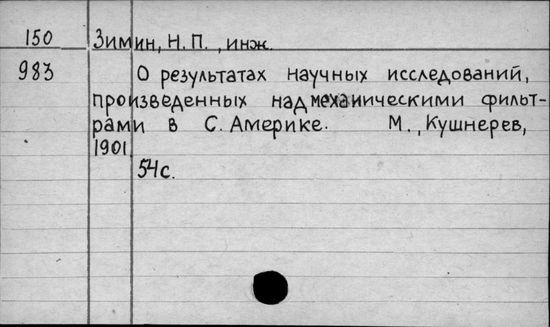 150 Зимин, Н. П., инж.
983 О результатах научных исследований,
произведенных над механическими фильт-
рами в С. Америке. М., Кушнерев,
1901.
54 с.